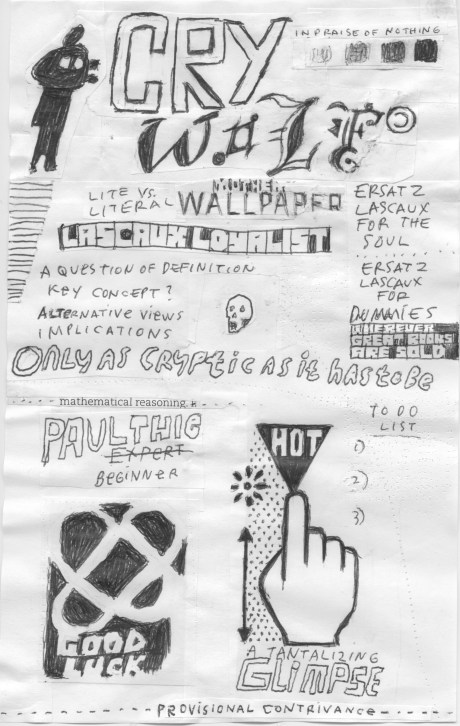 IN PRAISE OF NOTHING
CRY
WOLF
LITE VS.
LITERAL
MOTHER
WALLPAPER
ERSATZ
LASCAUX
FOR THE
SOUL
LASCAUX LOYALIST
ERSATZ
LASCAUX
FOR
DUMMIES
WHEREVER
GREAT BOOKS
ARE SOLD
A QUESTION OF DEFINITION
KEY CONCEPT?
ALTERNATIVE VIEWS
IMPLICATIONS
ONLY AS CRYPTIC AS it HAS to BE
mathematical reasoning.
PAUL THIG
EXPERT
BEGINNER
HOT
TO DO
LIST
1)
2)
3)
GOOD
LUCK
A TANTALIZING
GLIMPSE
PROVISIONAL CONTRIVANCE